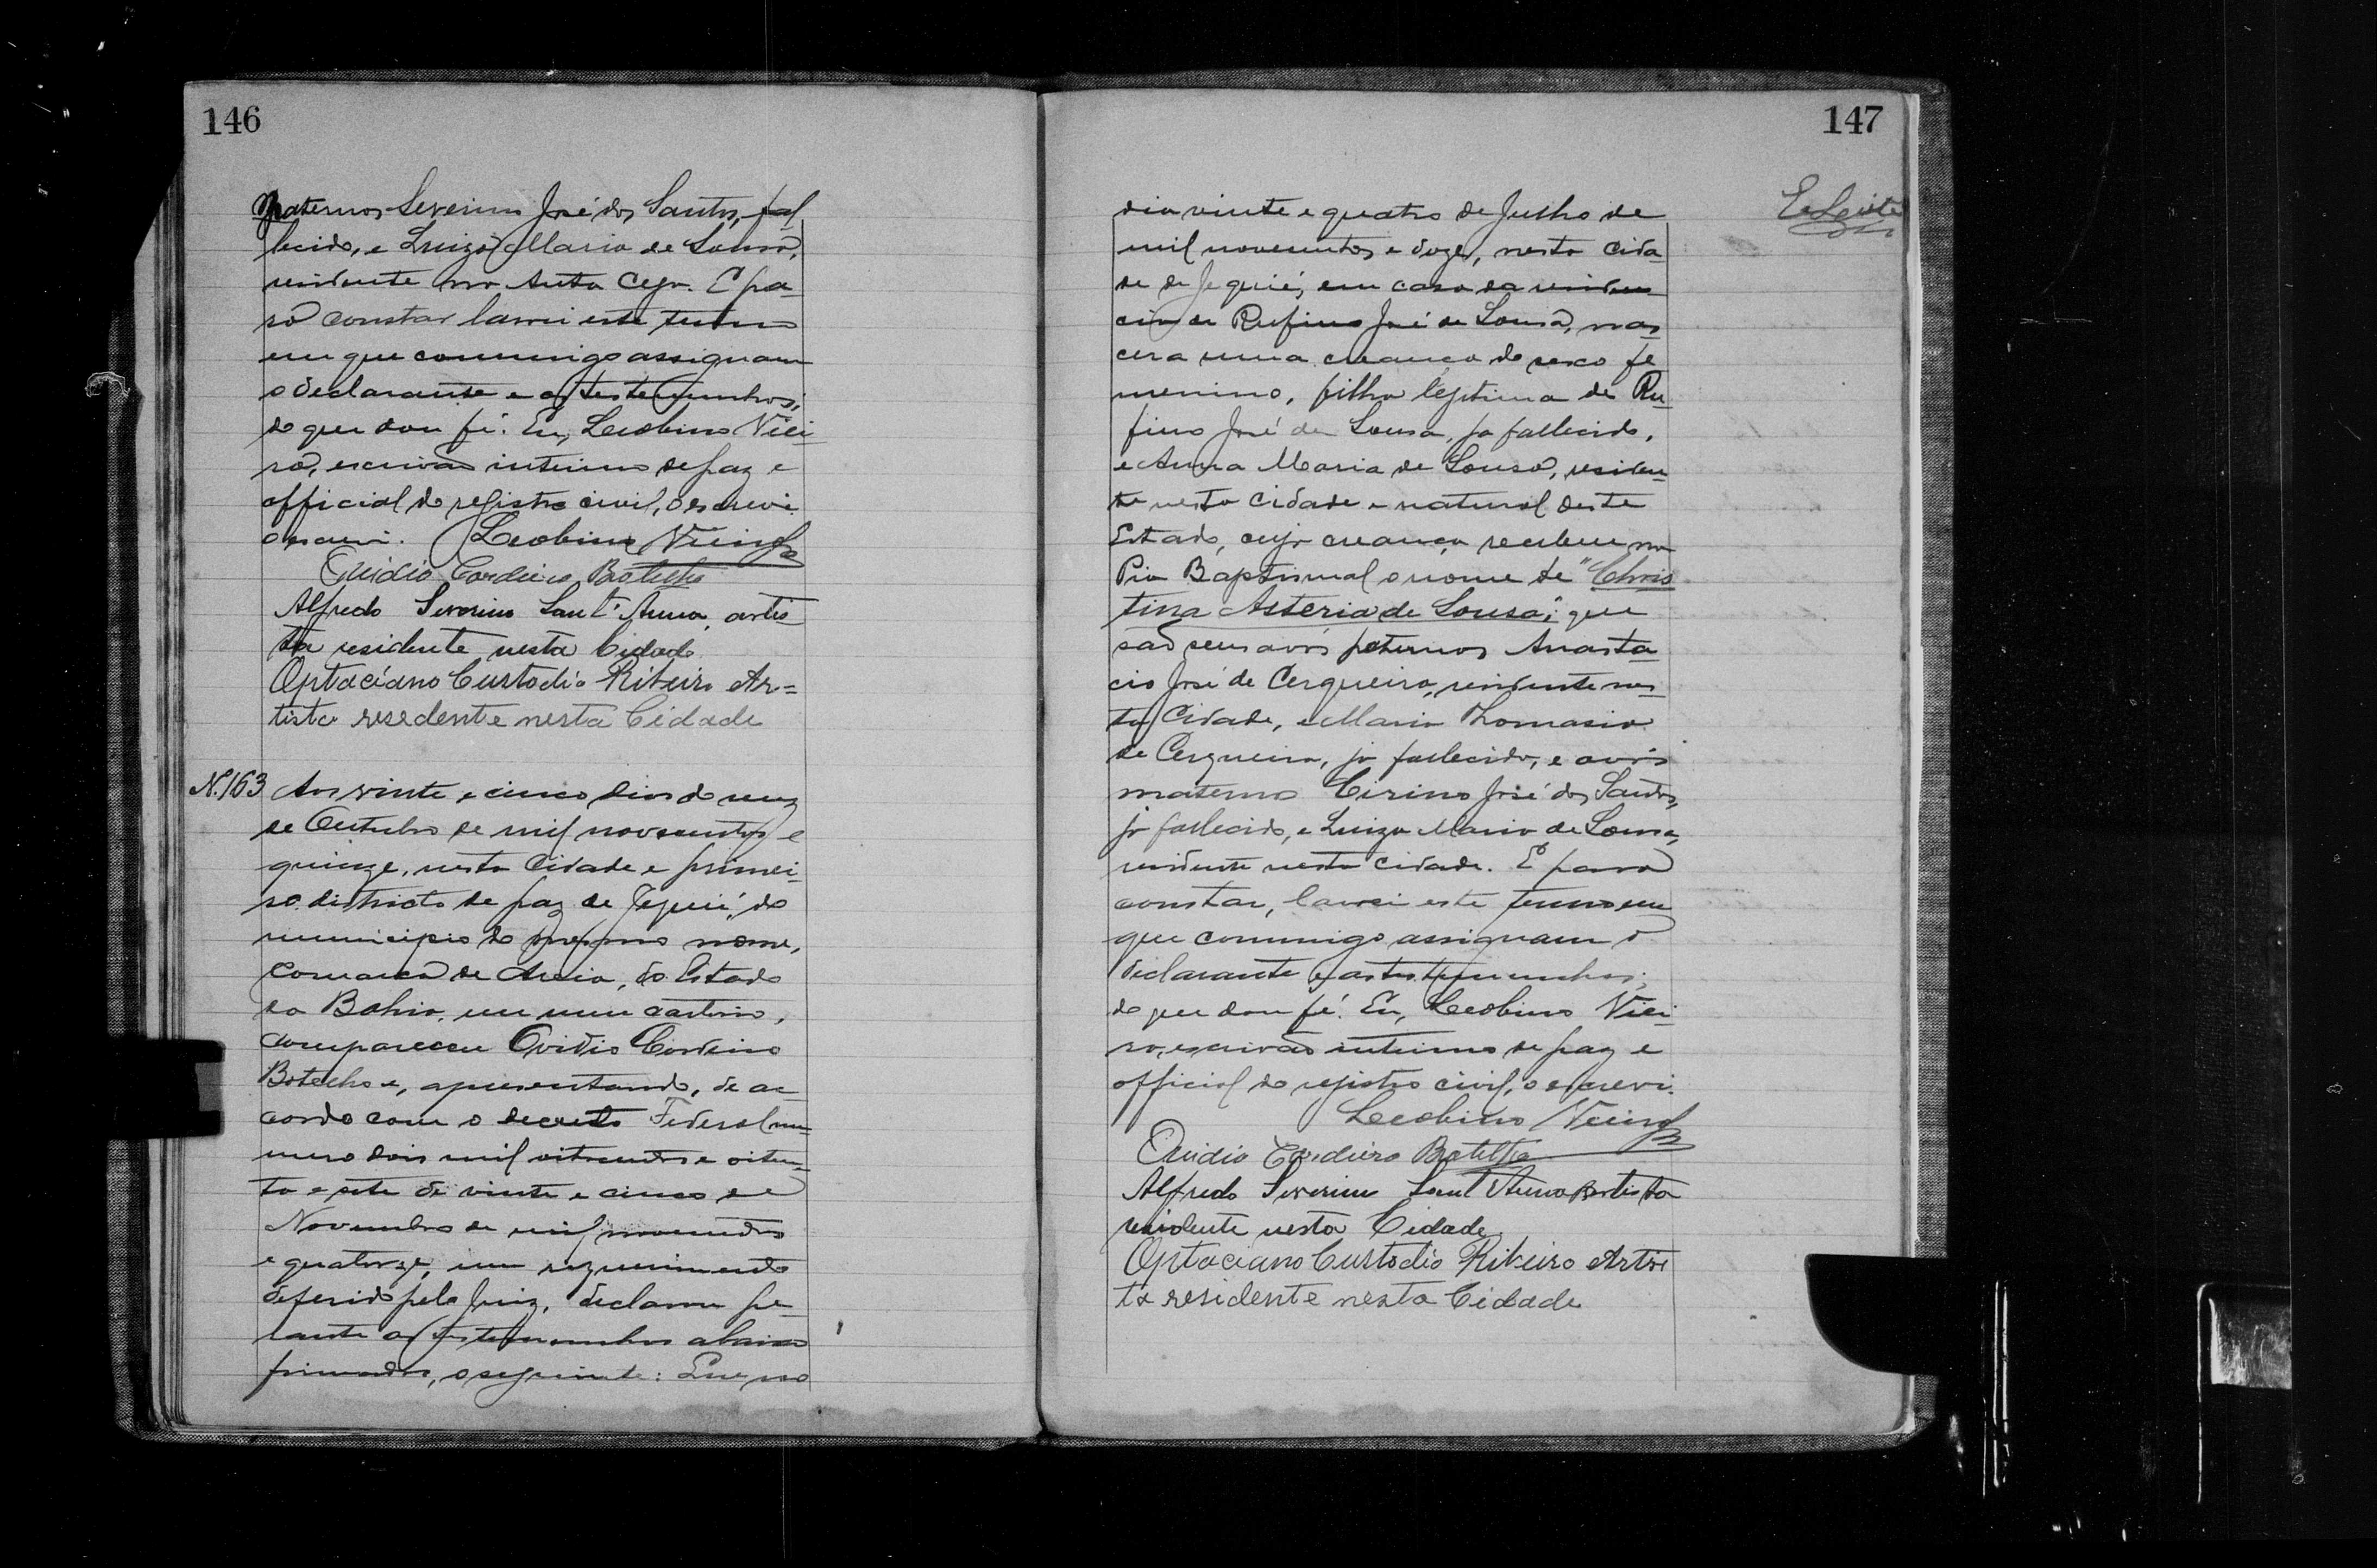 146
maternos Severino José dos Santos, fal
lecido, e Luiza Maria de Sousa,
residente no Anta Cega. E pa-
ra constar lavrei este termo
em que commigo assignam
o declarante e as testemunhas,
do que dou fé. Eu, Leobino Viei
ra, escrivão interino de paz e
official do registro civil, o escrevi
o escrevi. Leobino Vieira
Ovidio Cordeiro Botelho
Alfredo Severino Sant'Anna, artis-
ta residente nesta Cidade
Optaciano Custodio Ribeiro Ar=
tista resedente nesta Cidade
N. 163 Aos vinte e cinco dias do mez
de Outubro de mil novecentos e
quinze, nesta Cidade e primei-
ro districto de paz de Jequié, do
municipio do mesmo nome,
Comarca de Areia, do Estado
da Bahia, em meu cartorio,
compareceu Ovidio Cordeiro
Botelho e, apresentando, de ac
cordo com o decreto Federal nu-
mero dois mil oitocentos e oiten-
ta e sete de vinte e cinco de
Novembro de mil novecentos
e quatorze, um requerimento
deferido pelo Juiz, declarou pe-
rante as testemunhas abaixo
firmadas, o seguinte: Que no
147
E. Leite
dia vinte e quatro de Julho de
mil novecentos e doze, nesta cida
de de Jequié, em casa da residen
cia de Rufino José de Sousa, nas
cera uma creança do sexo fe
menino, filha legitima de Ru-
fino José de Sousa, ja fallecido,
e Anna Maria de Sousa, residen-
te nesta cidade e natural deste
Estado, cuja creança recebeu na
Pia Baptismal o nome de "Chris
tina Asteria de Sousa"; que
são seus avós paternos Anasta
cio José de Cerqueira, residente nes-
ta Cidade, e Maria Thomasia
de Cerqueira, ja fallecida, e avós
maternos Cirino José dos Santos,
ja fallecido, e Luiza Maria de Sousa,
residente nesta cidade. E para
constar, lavrei este termo em
que commigo assignam o
declarante e as testemunhas;
do que dou fé. Eu, Leobino Viei-
ra, escrivão interino de paz e
official do registro civil, o escrevi.
Leobino Vieira
Ovidio Cordeiro Botelho
Alfredo Severino Sant'Anna artista
residente nesta Cidade
Optaciano Custodio Ribeiro Artis
ta residente nesta Cidade